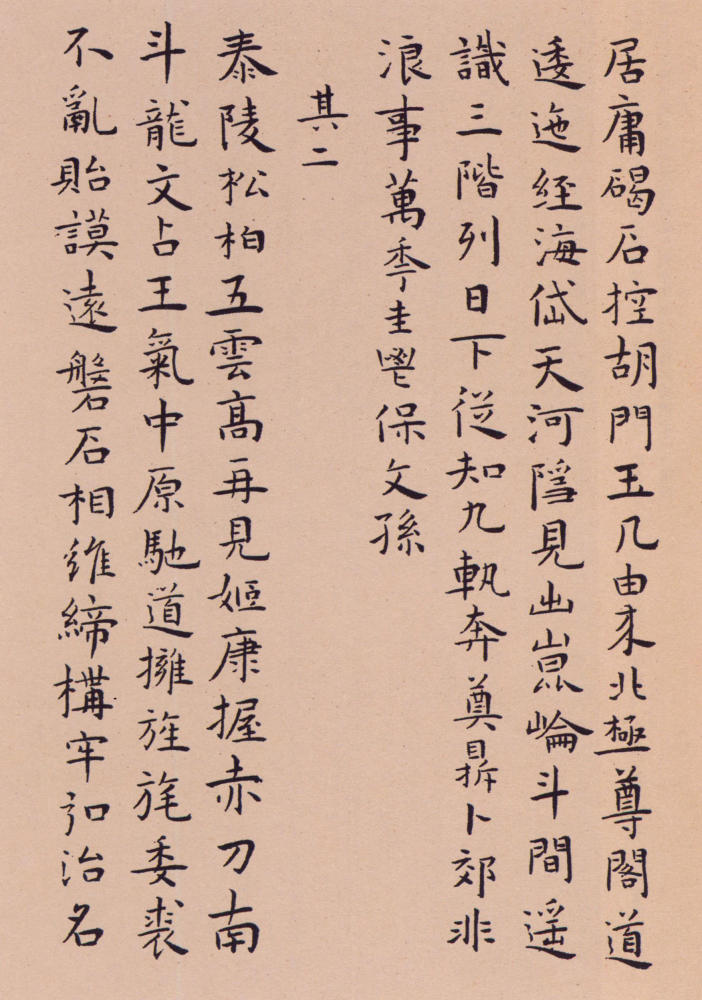 居庸碣石控胡門玉几由来北極尊閣道
逶迤経海岱天河隱見出崑崘斗間遥
識三階列日下從知九軌奔奠鼎卜郊非
浪事萬季圭鬯保文孫
其二
泰陵松柏五雲高再見姬康握赤刀南
斗龍文占王氣中原馳道擁旌旄委裘
不亂貽謨遠磐石相維締構牢弘治名